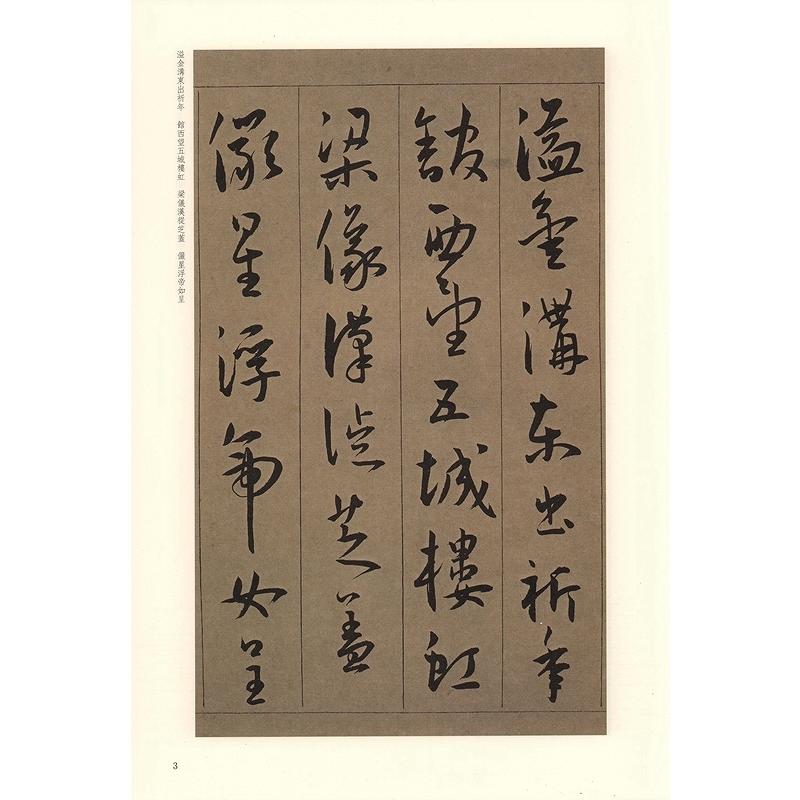 溢金溝東出祈年
館西望五城樓虹
梁儀漢從芝蓋
儼星浮帝女呈
溢金溝東出祈年　館西望五城樓虹　梁儀漢從芝蓋　儼星浮帝如呈
3